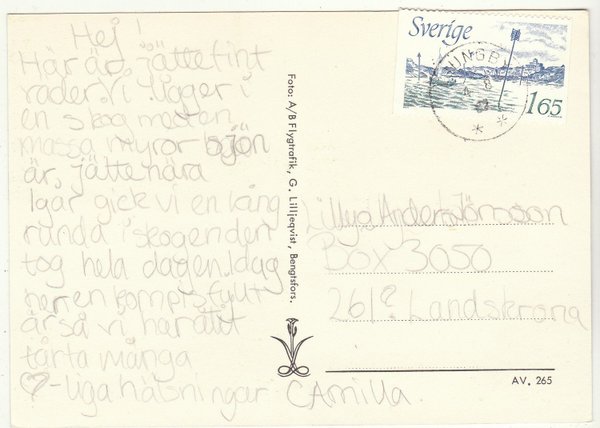 Hej!
Här är jättefint
väder. Vi ligger i
en skog med en
massa myror o sjön
är jättenära
Igår gick vi en lång
runda i skogen den
tog hela dagen. Idag
har en kompis fyllt
år så vi har ätit
tårta många
♡-liga hälsningar CAmilla.
Foto: A/B Flygtrafik, G. Lilljeqvist, Bengtsfors.
Sverige
165
Andersjönsson
Box 3050
261? Landskrona
AV. 265